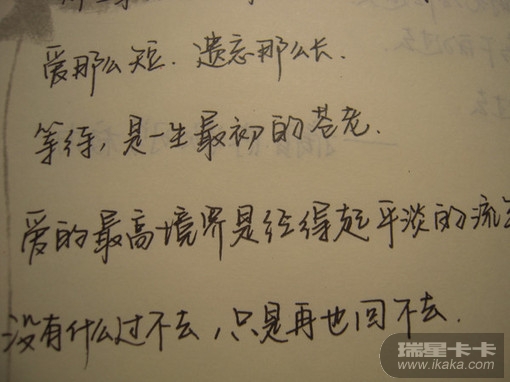 爱那么短.遗忘那么长.
等待,是一生最初的苍老.
爱的最高境界是经得起平淡的流
没有什么过不去,只是再也回不去.
瑞星卡卡
www.ikaka.com